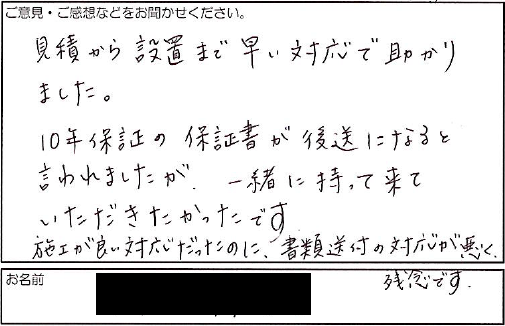 ご意見・ご感想などをお聞かせください。
見積から設置まで早い対応で助かり
ました。
10年保証の保証書が後送になると
言われましたが、一緒に持って来て
いただきたかったです
施工が良い対応だったのに、書類送付の対応が悪く、
残念です.
お名前